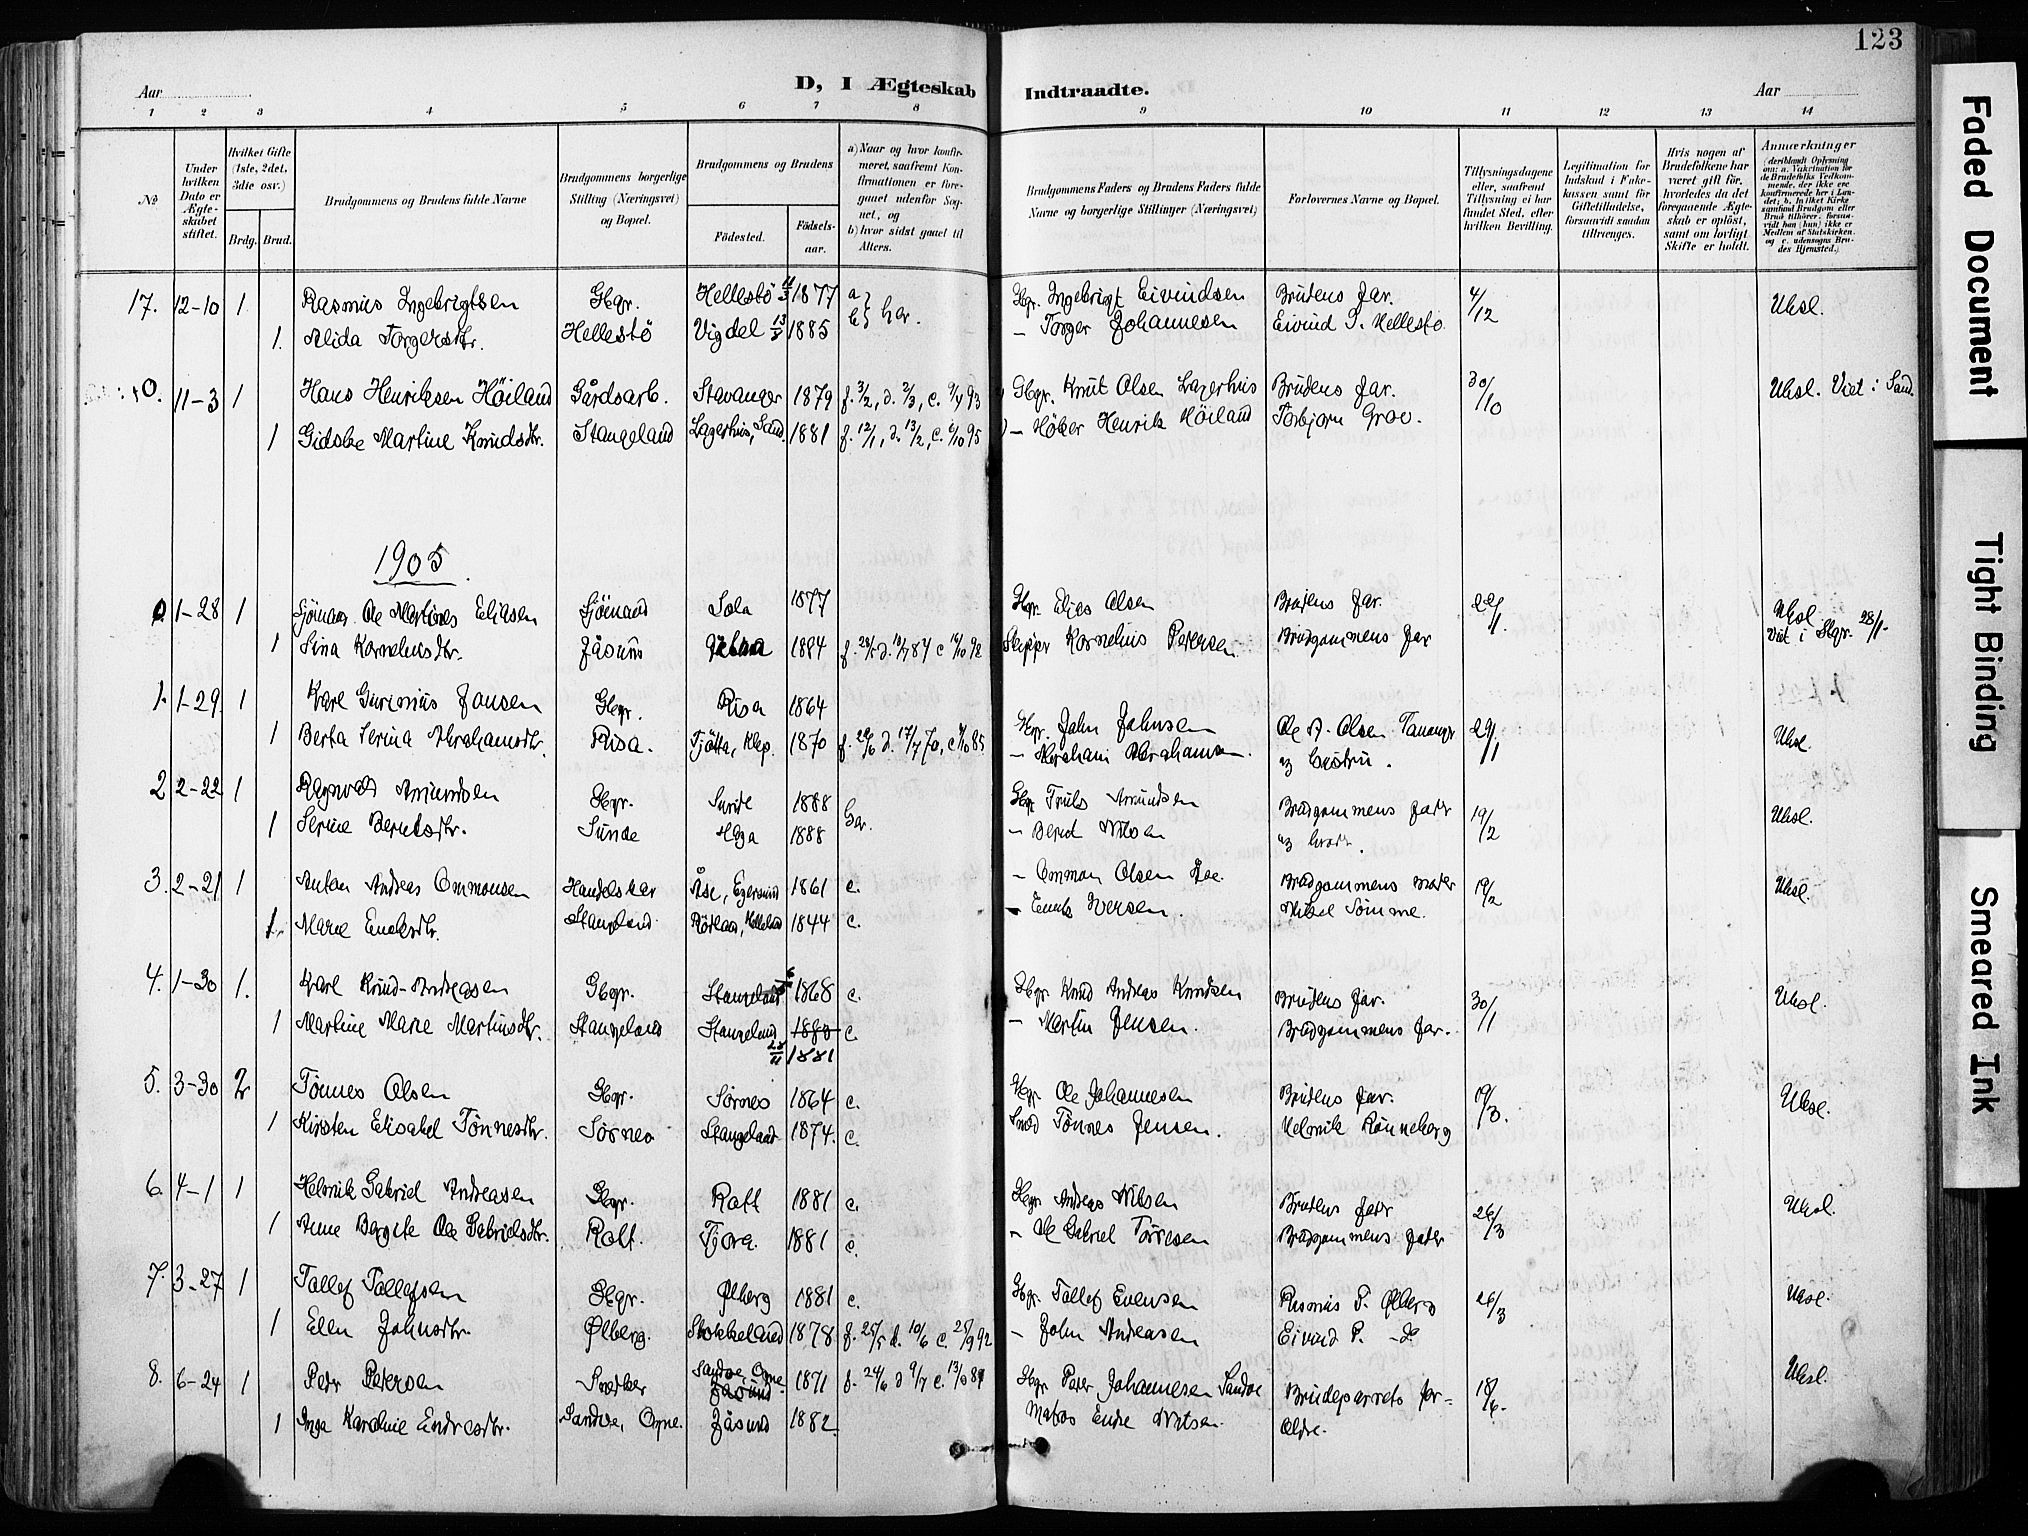 123
Aar
D, I Ægteskab Indtraadte.
Aar
1 2 3 4 5 6 7 8 9 10 11 12 13 14
No
Under hvilken Dato er Ægteskabet stiftet.
Hvilket Gifte (1ste, 2det, 3die osv.)
Brdg. Brud.
Brudgommens og Brudens fulde Navne
Brudgommens borgerlige Stilling (Næringsvei) og Bopæl.
Brudgommens og Brudens
Fødested. Fødselsaar.
a) Naar og hvor konfirmeret, saafremt Konfirmationen er foregaaet udenfor Sognet, og
b) hvor sidst gaaet til Alters.
Brudgommens Faders og Brudens Faders fulde Navne og borgerlige Stillinger (Næringsvei)
Forlovernes Navne og Bopæl.
Tillysningsdagene eller, saafremt Tillysning ei har fundet Sted, efter hvilken Bevilling.
Legitimation for Indskud i Enkekassen samt for Giftetilladelse, forsaavidt saadan tiltrænges.
Hvis nogen af Brudefolkene har været gift før, hvorledes da det foregaaende Ægteskab er opløst, samt om lovligt Skifte er holdt.
Anmærkninger
17. 12-10 1 Rasmus Ingebrigtsen Gbgr. Hellestö 1877 a} b} her. Gbgr. Ingebrigt Eivindsen Brudens far. 4/12 Uhsl.
1. Alida Torgersdtr. Hellestö Vigdel 13/5 1885 – Torger Johannesen Eivind P. Hellestö
0. 11-3 1 Hans Henriksen Höiland Gårdsarb. Stavanger 1879 f. 3/2, d. 2/3, c. 9/4 93 Gbgr. Knut Olsen Lagerhus Brudens far. 30/10 Uhsl. Viet i Sand.
1 Gidske Martine Knudsdtr. Stangeland Lagerhus, Sand. 1881 f. 12/1, d. 13/2, c. 6/10 95 – Höker Henrik Höiland Torbjorn Grov.
1905.
0. 1-28 1 Sjömann Ole Martines Eliasen Sjömand Sola 1877 Gbgr. Elias Olsen Brudens far. 22/1. Uhsl
1 Sina Kornelisdtr. Jåsund 1884 Skipper Kornelius Petersen Brudgommens far Viet i Stgr. 28/1.
1. 1-29 1 Karl Gurinius Jansen Gbgr. Risa 1864 Gbgr. John Johnsen Ole A. Olsen Tananger 29/1 Uhsl.
1 Berta Serina Abrahamsdtr. Risa. Tjötta, Klep. 1870 – Abraham Abrahamsen.
2 2-22 1 Ragnvald Amundsen Gbgr. Sunde 1888 her. Gbgr Truls Amundsen Brudgommens fader 19/2 Uhsl.
1 Serine Berntsdtr. Sunde Haga 1888 – Bernt Nilsen
3. 2-21 1 Anton Andreas Ommonsen Handelskar Åse, Egersund 1861 c. – Ommon Olsen Åse. Brudgommens moder 19/2 Uhsl.
1. Marie Enoksdtr. Stangeland 1844 c. – Enok Iversen. Mikal Sömme.
4. 1-30 1. Karl Knud-Andreasen Gbgr. Stangeland 1868 c. Gbgr Knud Andreas Knudsen Brudens far. 30/1 Uhsl.
1 Martine Marie Martinsdtr. Stangeland Stangeland 1880 c – Martin Jensen. Brudgommens far.
28/11 1881
5. 3-30 2 Tönnes Olsen Gbgr. Sörnes 1864 c. Gbgr Ole Johannesen Brudens far. 19/3. Uhsl.
1 Kirsten Elisabet Tönnesdtr. Sörnes Stangeland 1874. c. Tönnes Jensen. Helmik Rönneberg
6. 4-1 1 Helmik Gabriel Andreasen Gbgr. Rott 1881 c. Gbgr Andreas Nilsen Brudens fader 26/3 Uhsl.
1 Anne Bergite Ole Gabrielsdtr. Rott. Tjora. 1881 c. – Ole Gabriel Törresen Brudgommens fader
7. 3-27 1 Tollef Tollefsen Gbgr. Ølberg 1881 c. Gbgr. Tollef Evensen Rasmus P. Ølberg 26/3 Uhsl.
1 Ellen Johnsdtr. Ølberg. Stokkeland 1878 f. 25/5 d. 10/6 c. 25/9 92 – John Andreasen Eivind P. –do
8. 6-24 1 Peder Petersen Snedker Sandve, Ogne Jåsund 1871 f. 24/6 d 9/7 c. 13/10 89 Gbgr Peter Johannesen Sandve Brudeparrets for- 18/6. Uhsl.
1 Inga Karoline Endresdtr. Sandve, Ogne. Jåsund 1882. Matros Endre Nilsen. ældre.
Faded Document
Tight Binding
Smeared Ink